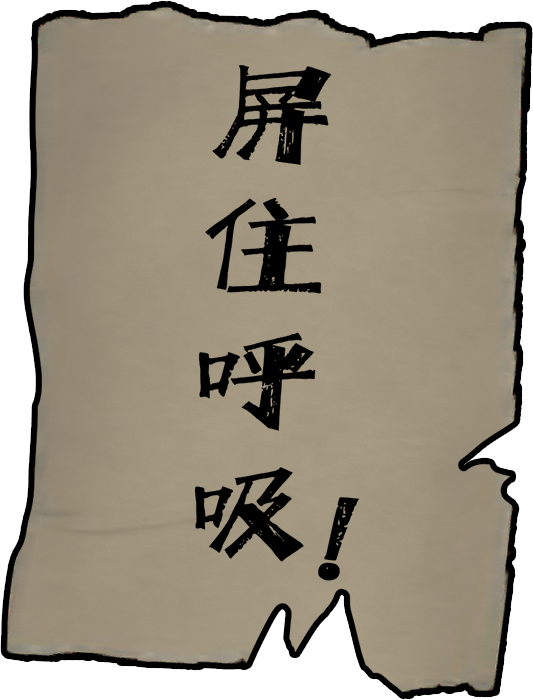 屏住呼吸！